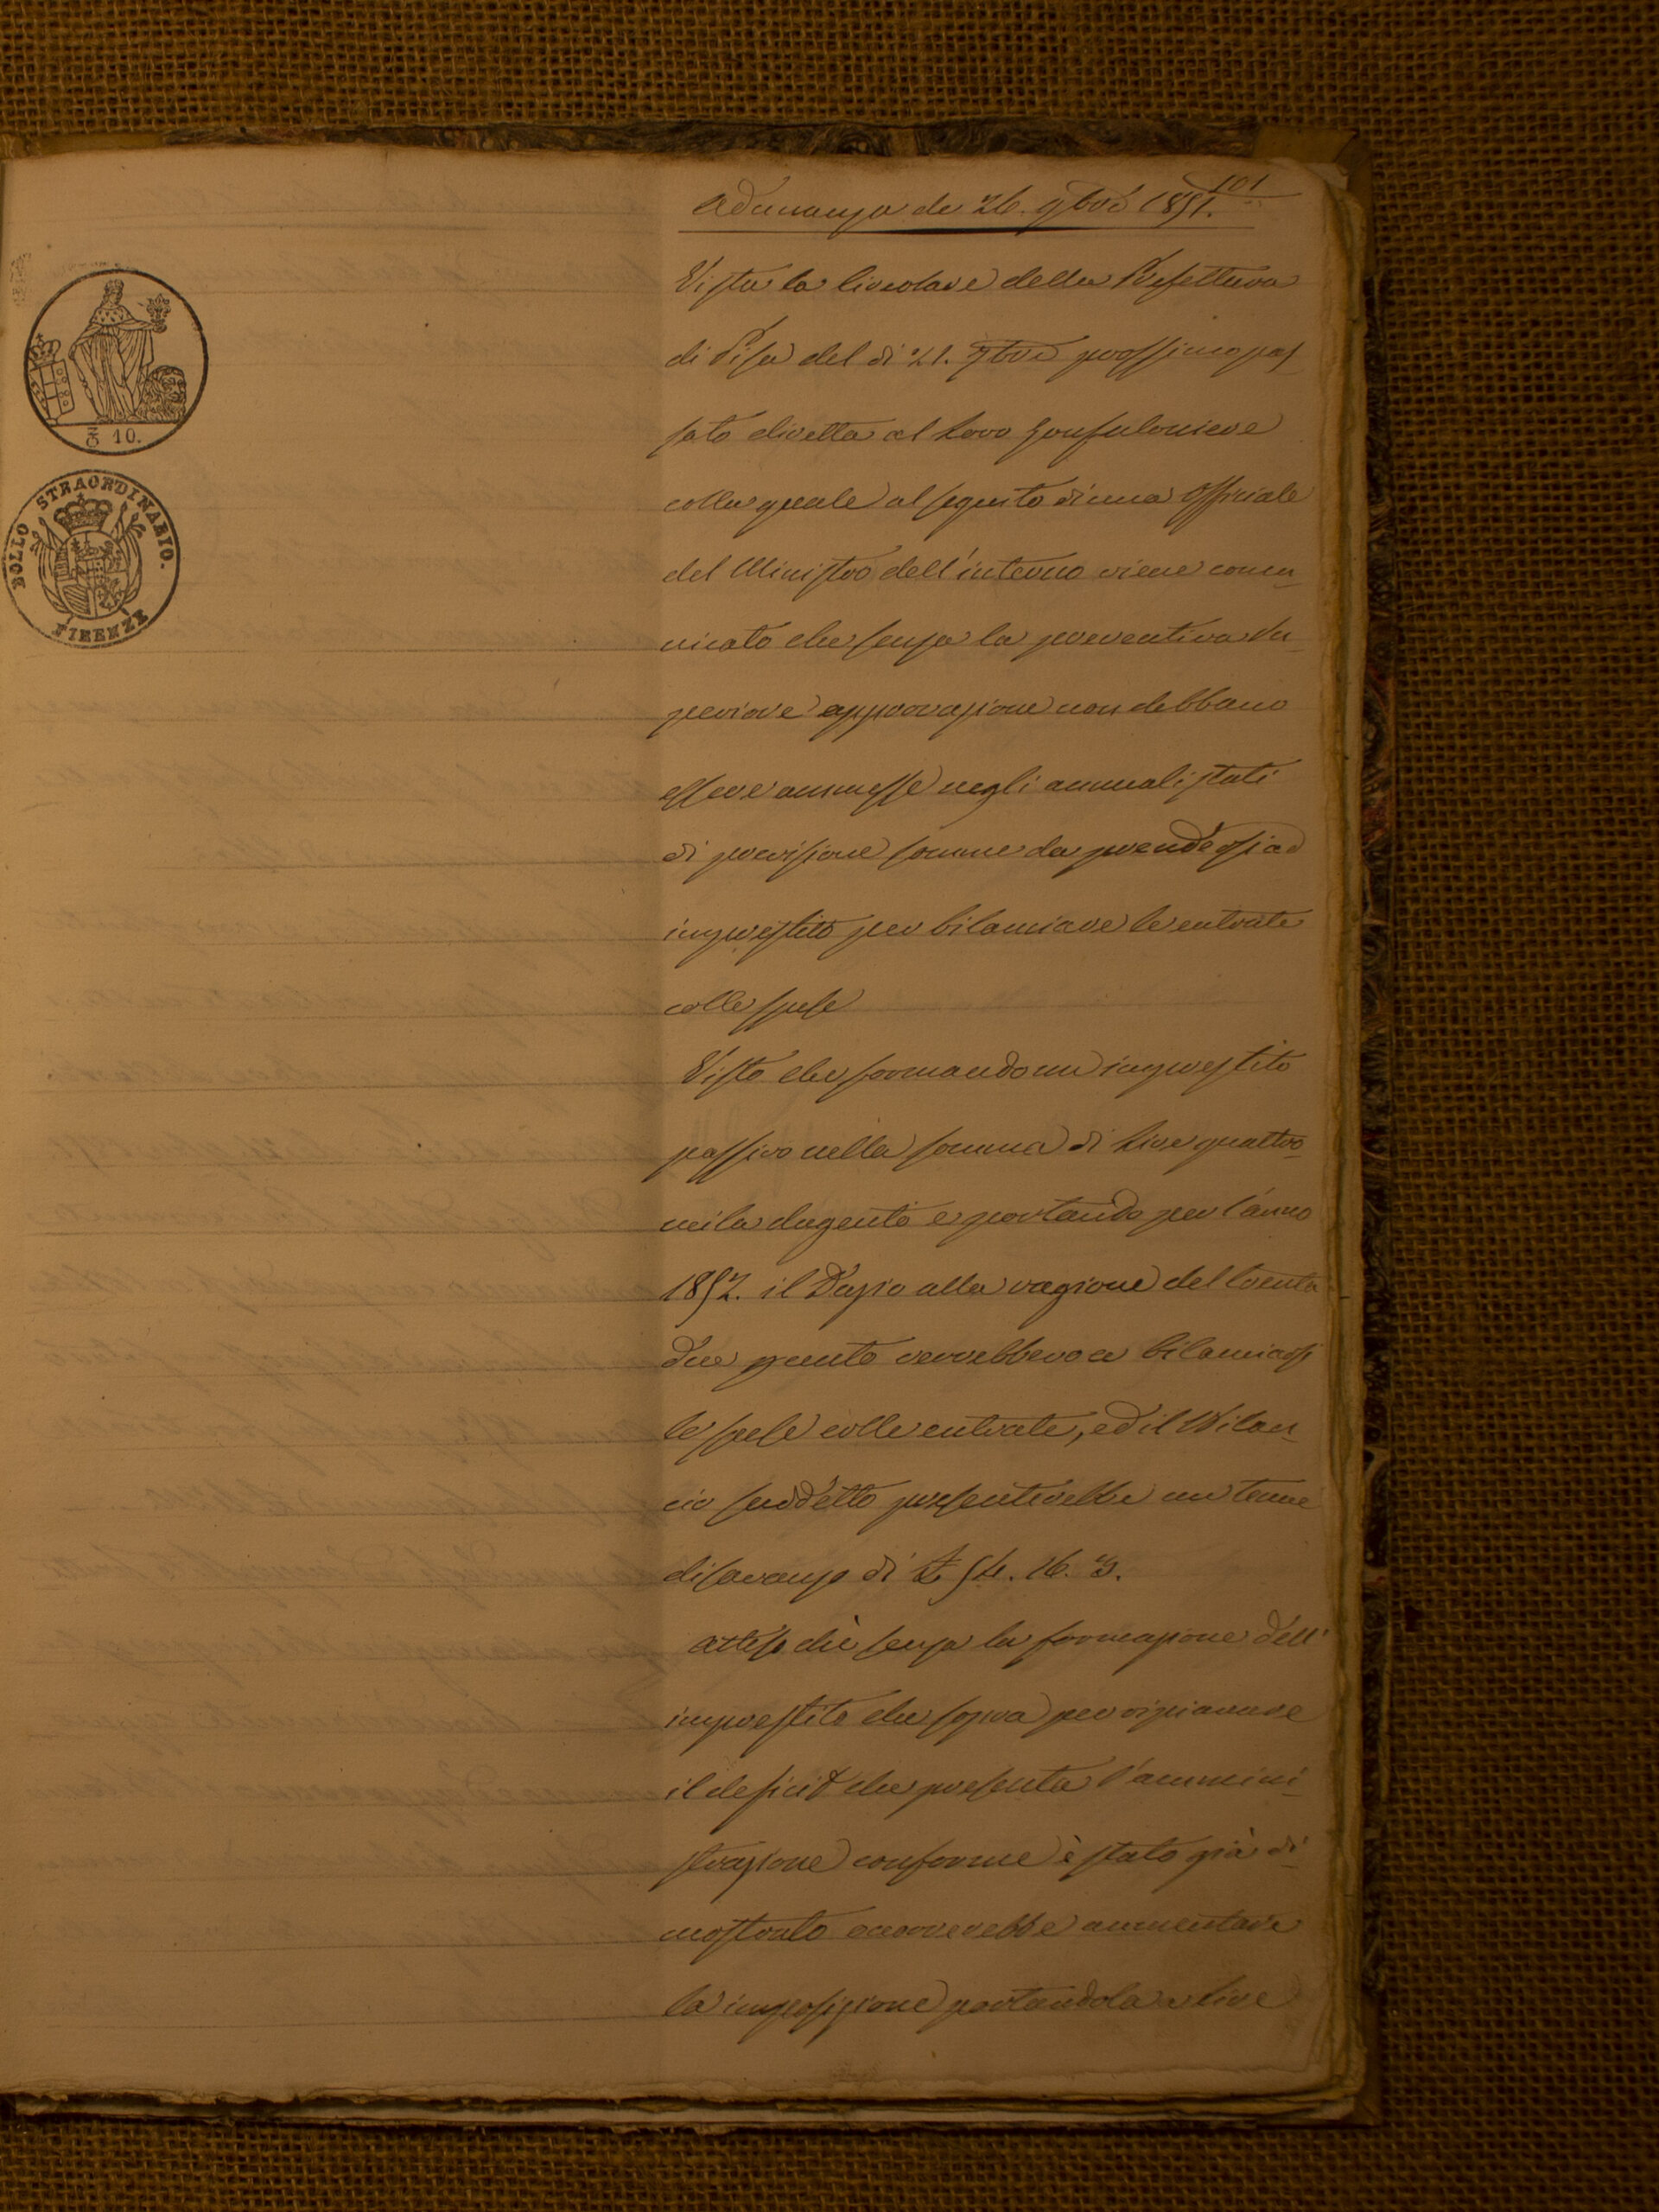 101
Adunanza de 26. 9bre 1851.
Vista la Circolare della Prefettura
di Pisa del dì 21. 7bre prossimo pas
sato diretta al Loro Gonfaloniere
colla quale al seguito di una Officiale
del Ministro dell'interno viene comu
nicato che senza la preventiva Su
periore approvazione non debbano
essere ammesse negli annuali stati
di previsione somme da prendersi ad
imprestito per bilanciare le entrate
colle spese
Visto che formando un imprestito
passivo nella somma di Lire quattro
mila dugento e portando per l'anno
1852. il Dazio alla ragione del trenta
due per cento verrebbero a bilanciarsi
le spese colle entrate, ed il Bilan
cio suddetto presenterebbe un tenue
disavanzo di £ 54. 16. 3.
Atteso chè senza la formazione dell'
imprestito che sopra per ripianare
il deficit che presenta l'ammini
strazione conforme è stato già di
mostrato occorrerebbe aumentare
la imposizione portandola a Lire
₢ 10.
BOLLO STRAORDINARIO.
FIRENZE